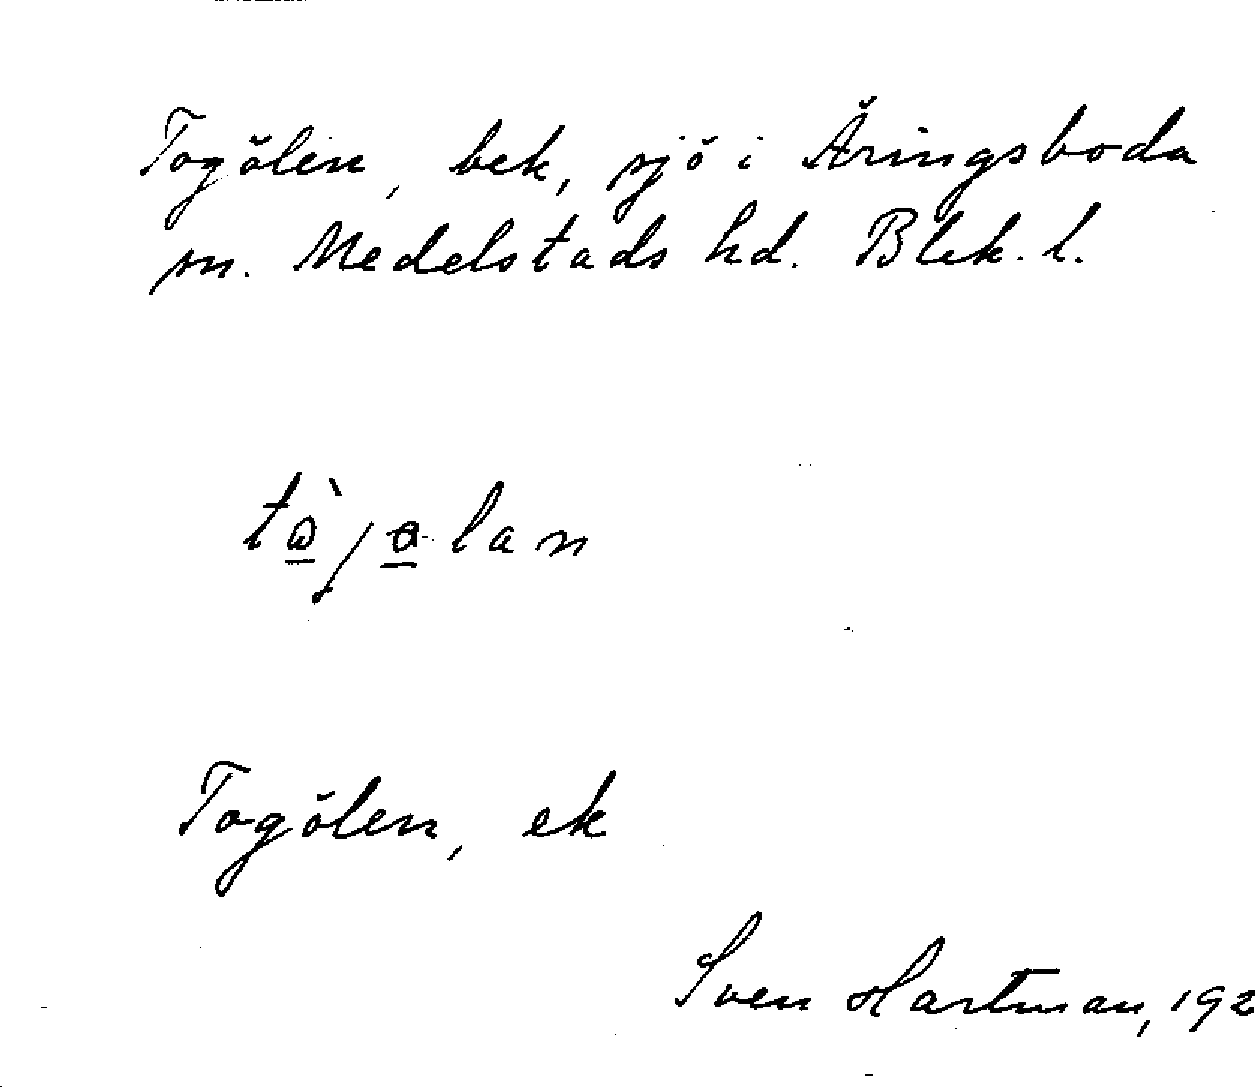 Togölen, bek, sjö i Åringsboda
sn. Medelstads hd. Blek. l.
Togölen, ek
Sven Hartman, 192